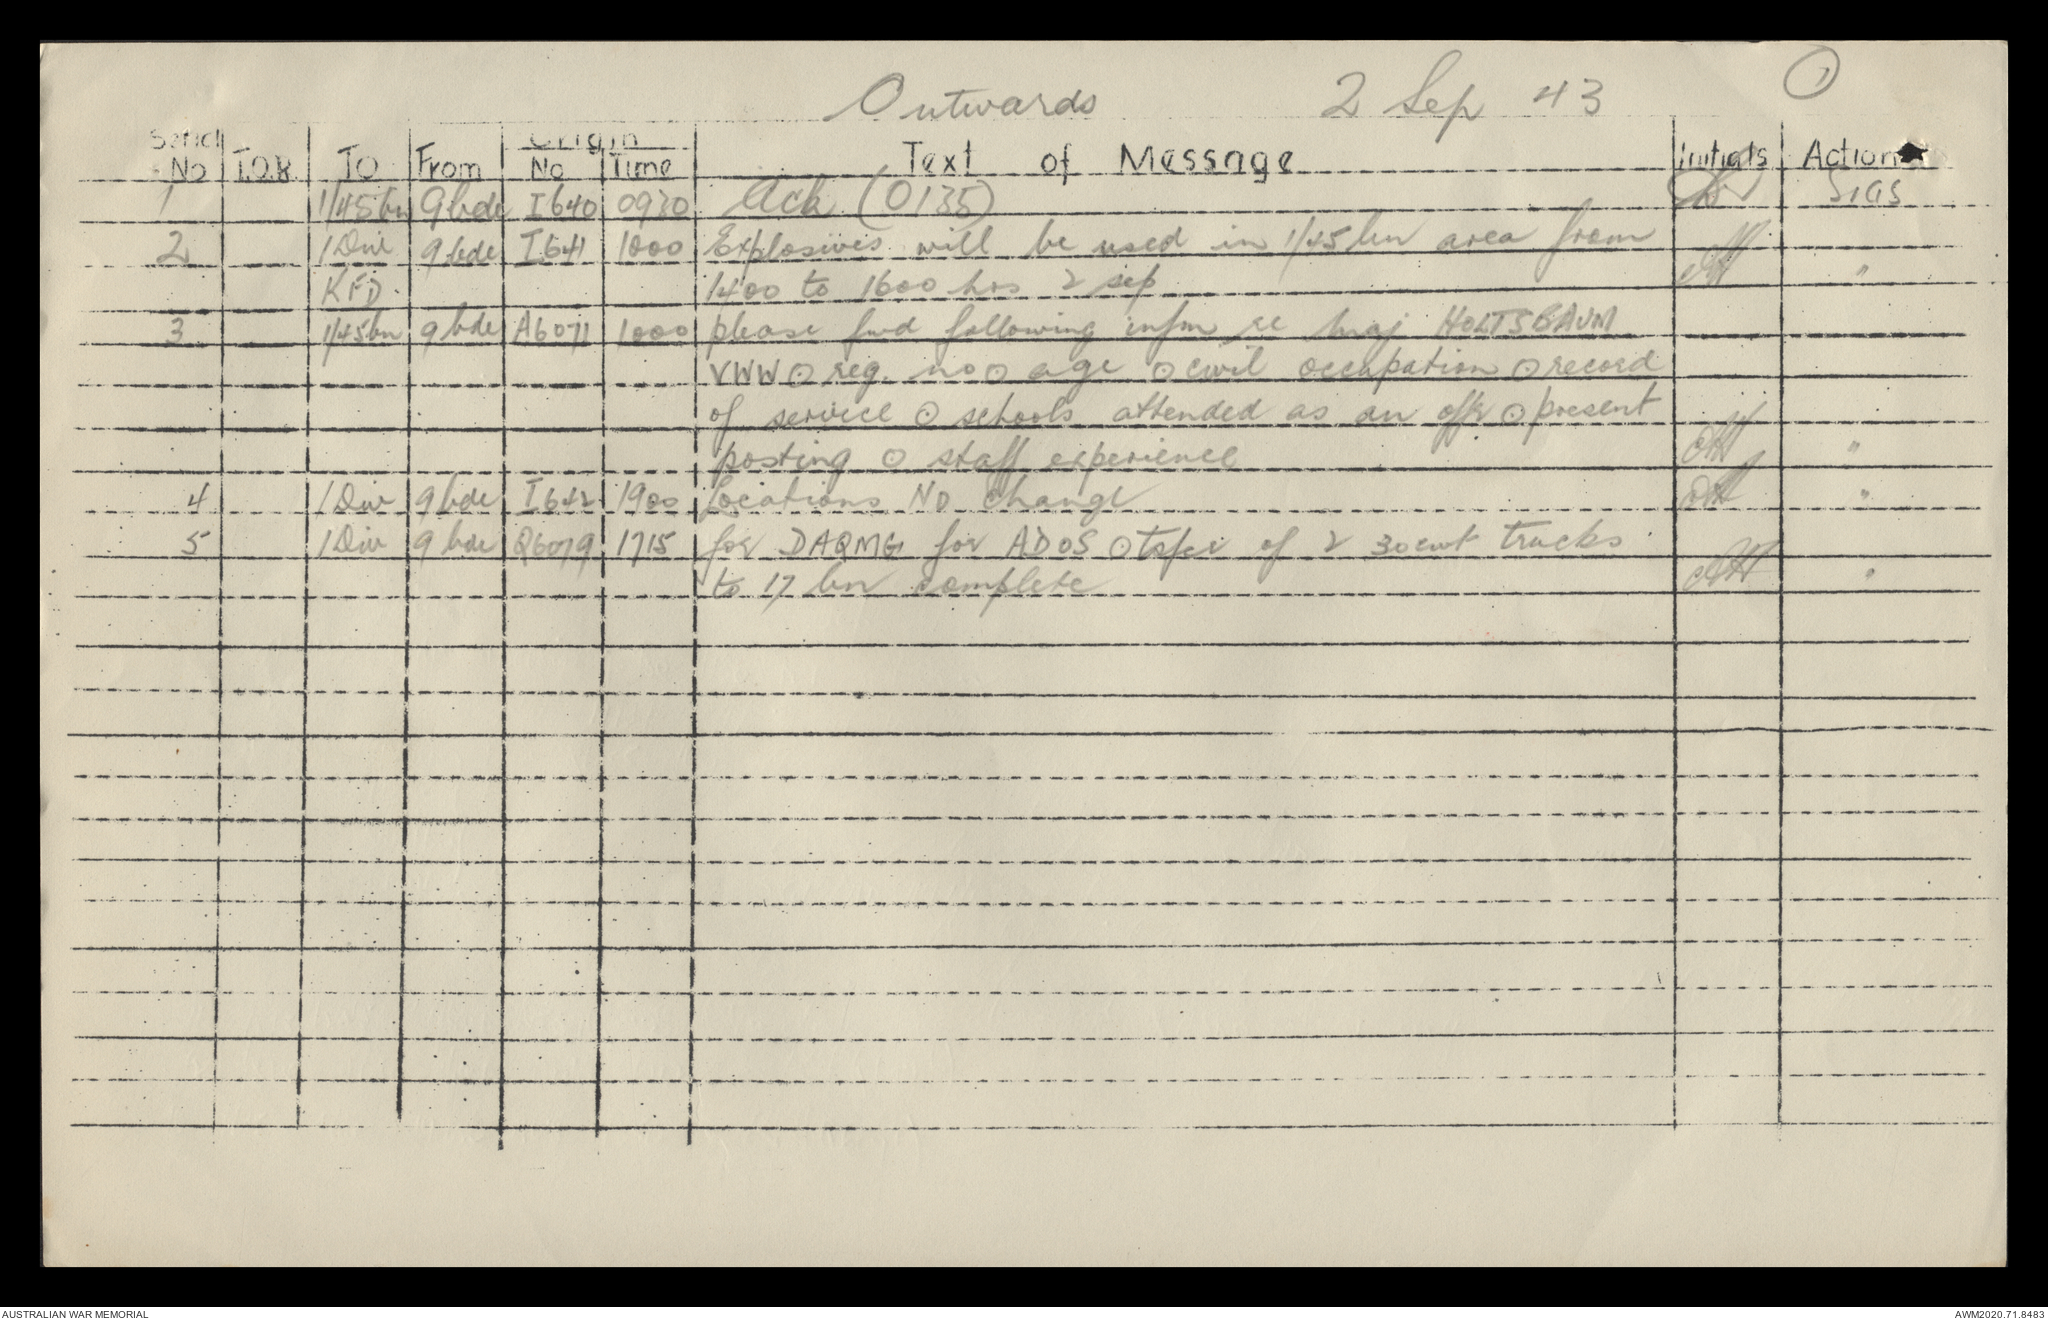 Outwards 2 Sep 43 1
Serial Origin
No T.O.R. TO From No Time Text of Message Initials Action
1 1/45 bn 9 bde I640 0930 Ack (0135) SIGS
2 1 Div 9 bde I641 1000 Explosives will be used in 1/45 bn area from
KFD. 1400 to 1600 hrs 2 sep "
3 1/45 bn 9 bde A6071 1000 please fwd following infm re maj HOLTSBAUM
VWW ⊙ reg. no ⊙ age ⊙ civil occupation ⊙ record
of service ⊙ schools attended as an offr ⊙ present
posting ⊙ staff experience "
4 1 Div 9 bde I642 1900 Locations NO change "
5 1 Div 9 bde Q6079 1715 for DAQMG for ADOS ⊙ tsfer of 2 30cwt trucks
to 17 bn complete "
AUSTRALIAN WAR MEMORIAL AWM2020.71.8483